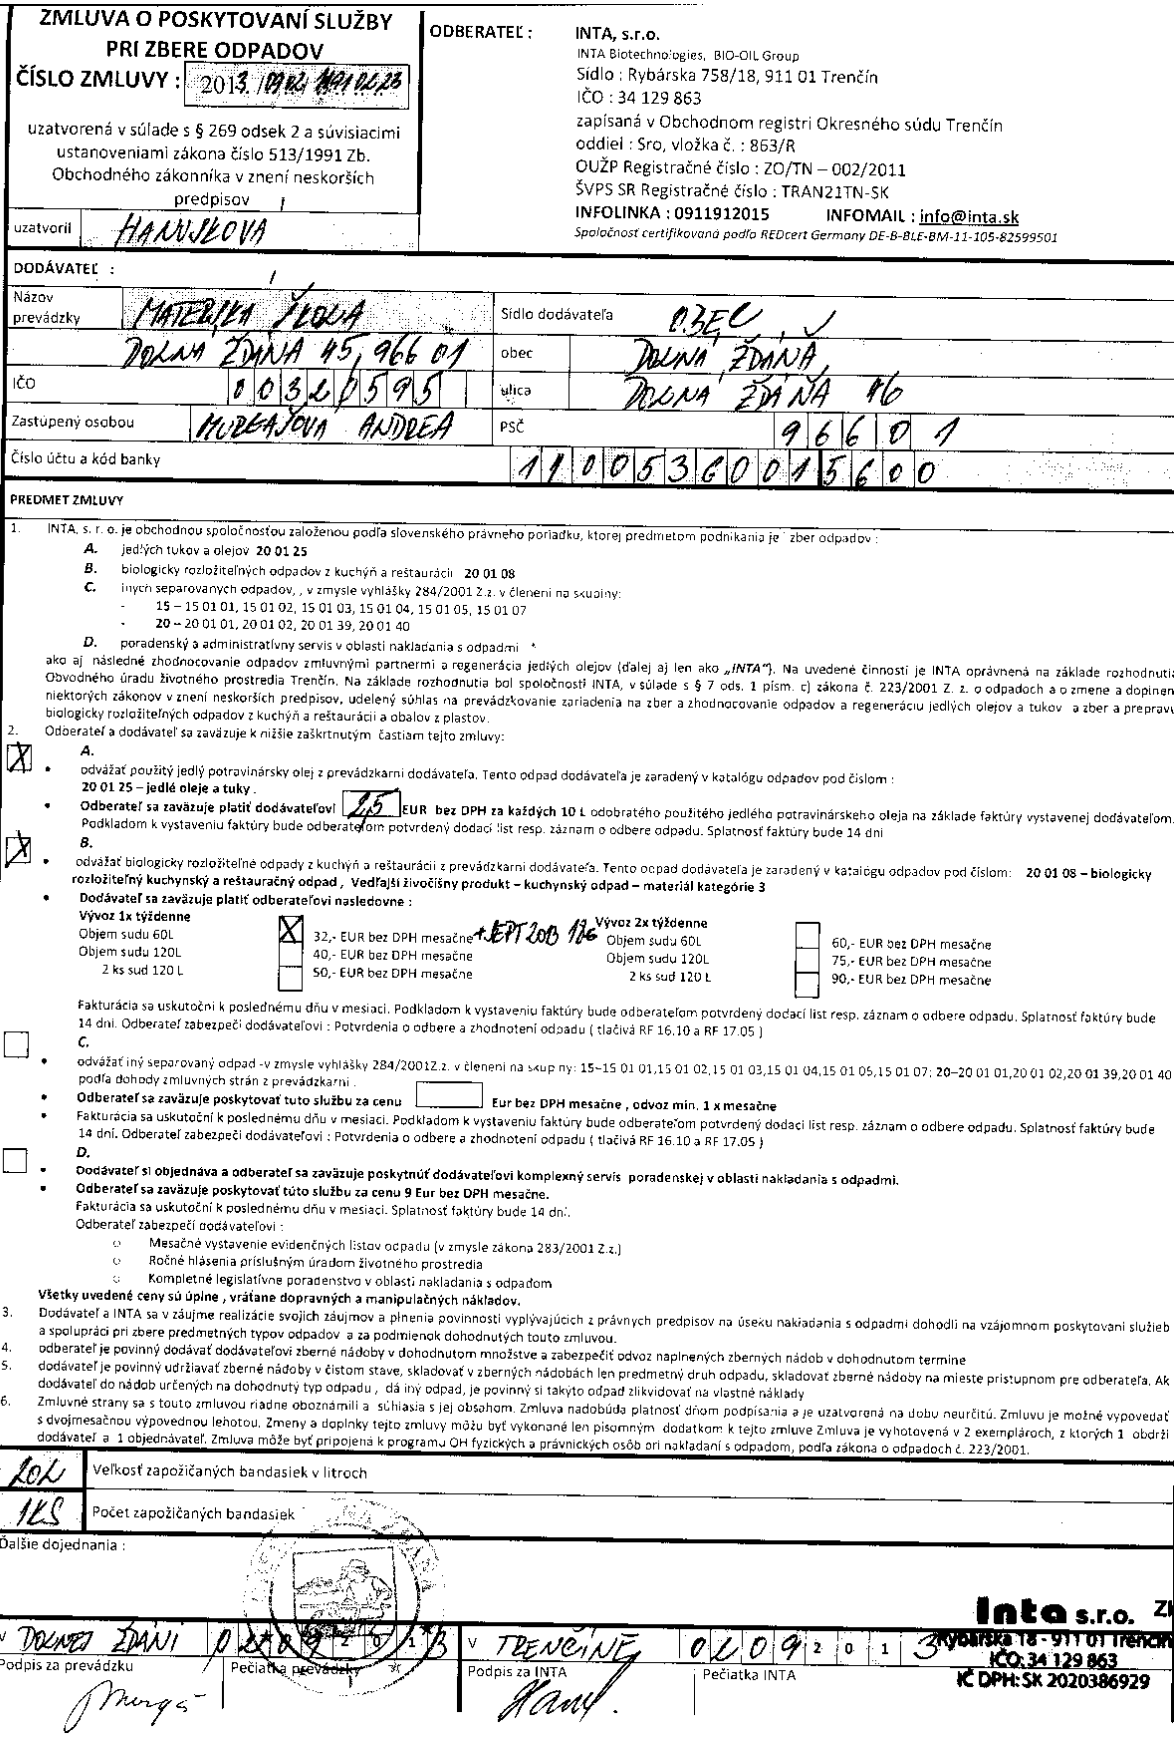 ZMLUVA O POSKYTOVANÍ SLUŽBY
PRI ZBERE ODPADOV
ČÍSLO ZMLUVY : 2013
uzatvorená v súlade s § 269 odsek 2 a súvisiacimi
ustanoveniami zákona číslo 513/1991 Zb.
Obchodného zákonníka v znení neskorších
predpisov
uzatvoril HANUSKOVA
ODBERATEĽ : INTA, s.r.o.
INTA Biotechnologies, BIO-OIL Group
Sídlo : Rybárska 758/18, 911 01 Trenčín
IČO : 34 129 863
zapísaná v Obchodnom registri Okresného súdu Trenčín
oddiel : Sro, vložka č. : 863/R
OUŽP Registračné číslo : ZO/TN – 002/2011
ŠVPS SR Registračné číslo : TRAN21TN-SK
INFOLINKA : 0911912015 INFOMAIL : info@inta.sk
Spoločnosť certifikovaná podľa REDcert Germany DE-B-BLE-BM-11-105-82599501
DODÁVATEĽ :
Názov prevádzky MATERSKÁ ŠKOLA
DOLNÁ ŽDAŇA 45, 966 01
Sídlo dodávateľa OBEC
obec DOLNÁ ŽDAŇA,
IČO 00320595
ulica DOLNÁ ŽDAŇA 46
Zastúpený osobou MURGAŠOVA ANDREA
PSČ 96601
Číslo účtu a kód banky 11005360015600
PREDMET ZMLUVY
1. INTA, s. r. o. je obchodnou spoločnosťou založenou podľa slovenského právneho poriadku, ktorej predmetom podnikania je zber odpadov :
A. jedlých tukov a olejov 20 01 25
B. biologicky rozložiteľných odpadov z kuchýň a reštaurácií 20 01 08
C. iných separovaných odpadov, , v zmysle vyhlášky 284/2001 Z.z. v členení na skupiny:
- 15 – 15 01 01, 15 01 02, 15 01 03, 15 01 04, 15 01 05, 15 01 07
- 20 – 20 01 01, 20 01 02, 20 01 39, 20 01 40
D. poradenský a administratívny servis v oblasti nakladania s odpadmi
ako aj následné zhodnocovanie odpadov zmluvnými partnermi a regenerácia jedlých olejov (ďalej aj len ako „INTA"). Na uvedené činnosti je INTA oprávnená na základe rozhodnutia
Obvodného úradu životného prostredia Trenčín. Na základe rozhodnutia bol spoločnosti INTA, v súlade s § 7 ods. 1 písm. c) zákona č. 223/2001 Z. z. o odpadoch a o zmene a doplnen
niektorých zákonov v znení neskorších predpisov, udelený súhlas na prevádzkovanie zariadenia na zber a zhodnocovanie odpadov a regeneráciu jedlých olejov a tukov a zber a prepravu
biologicky rozložiteľných odpadov z kuchýň a reštaurácií a obalov z plastov.
2. Odberateľ a dodávateľ sa zaväzuje k nižšie zaškrtnutým častiam tejto zmluvy:
X A.
• odvážať použitý jedlý potravinársky olej z prevádzkarni dodávateľa. Tento odpad dodávateľa je zaradený v katalógu odpadov pod číslom :
20 01 25 – jedlé oleje a tuky .
• Odberateľ sa zaväzuje platiť dodávateľovi 2,5 EUR bez DPH za každých 10 L odobratého použitého jedlého potravinárskeho oleja na základe faktúry vystavenej dodávateľom.
Podkladom k vystaveniu faktúry bude odberateľom potvrdený dodací list resp. záznam o odbere odpadu. Splatnosť faktúry bude 14 dní
X B.
• odvážať biologicky rozložiteľné odpady z kuchýň a reštaurácií z prevádzkarni dodávateľa. Tento odpad dodávateľa je zaradený v katalógu odpadov pod číslom: 20 01 08 – biologicky
rozložiteľný kuchynský a reštauračný odpad , Vedľajší živočíšny produkt – kuchynský odpad – materiál kategórie 3
• Dodávateľ sa zaväzuje platiť odberateľovi nasledovne :
Vývoz 1x týždenne Vývoz 2x týždenne
Objem sudu 60L X 32,- EUR bez DPH mesačne + SEPT 2013 Objem sudu 60L 60,- EUR bez DPH mesačne
Objem sudu 120L 40,- EUR bez DPH mesačne Objem sudu 120L 75,- EUR bez DPH mesačne
2 ks sud 120 L 50,- EUR bez DPH mesačne 2 ks sud 120 L 90,- EUR bez DPH mesačne
Fakturácia sa uskutoční k poslednému dňu v mesiaci. Podkladom k vystaveniu faktúry bude odberateľom potvrdený dodací list resp. záznam o odbere odpadu. Splatnosť faktúry bude
14 dní. Odberateľ zabezpečí dodávateľovi : Potvrdenia o odbere a zhodnotení odpadu ( tlačivá RF 16.10 a RF 17.05 )
C.
• odvážať iný separovaný odpad -v zmysle vyhlášky 284/2001Z.z. v členení na skupiny: 15–15 01 01,15 01 02,15 01 03,15 01 04,15 01 05,15 01 07; 20–20 01 01,20 01 02,20 01 39,20 01 40
podľa dohody zmluvných strán z prevádzkarni .
• Odberateľ sa zaväzuje poskytovať tuto službu za cenu Eur bez DPH mesačne , odvoz min. 1 x mesačne
• Fakturácia sa uskutoční k poslednému dňu v mesiaci. Podkladom k vystaveniu faktúry bude odberateľom potvrdený dodací list resp. záznam o odbere odpadu. Splatnosť faktúry bude
14 dní. Odberateľ zabezpečí dodávateľovi : Potvrdenia o odbere a zhodnotení odpadu ( tlačivá RF 16.10 a RF 17.05 )
D.
• Dodávateľ si objednáva a odberateľ sa zaväzuje poskytnúť dodávateľovi komplexný servis poradenskej v oblasti nakladania s odpadmi.
• Odberateľ sa zaväzuje poskytovať túto službu za cenu 9 Eur bez DPH mesačne.
Fakturácia sa uskutoční k poslednému dňu v mesiaci. Splatnosť faktúry bude 14 dní.
Odberateľ zabezpečí dodávateľovi :
○ Mesačné vystavenie evidenčných listov odpadu (v zmysle zákona 283/2001 Z.z.)
○ Ročné hlásenia príslušným úradom životného prostredia
○ Kompletné legislatívne poradenstvo v oblasti nakladania s odpadom
Všetky uvedené ceny sú úplne , vrátane dopravných a manipulačných nákladov.
3. Dodávateľ a INTA sa v záujme realizácie svojich záujmov a plnenia povinnosti vyplývajúcich z právnych predpisov na úseku nakladania s odpadmi dohodli na vzájomnom poskytovaní služieb
a spolupráci pri zbere predmetných typov odpadov a za podmienok dohodnutých touto zmluvou.
4. odberateľ je povinný dodávať dodávateľovi zberné nádoby v dohodnutom množstve a zabezpečiť odvoz naplnených zberných nádob v dohodnutom termíne
5. dodávateľ je povinný udržiavať zberné nádoby v čistom stave, skladovať v zberných nádobách len predmetný druh odpadu, skladovať zberné nádoby na mieste prístupnom pre odberateľa. Ak
dodávateľ do nádob určených na dohodnutý typ odpadu , dá iný odpad, je povinný si takýto odpad zlikvidovať na vlastné náklady
6. Zmluvné strany sa s touto zmluvou riadne oboznámili a súhlasia s jej obsahom. Zmluva nadobúda platnosť dňom podpísania a je uzatvorená na dobu neurčitú. Zmluvu je možné vypovedať
s dvojmesačnou výpovednou lehotou. Zmeny a doplnky tejto zmluvy môžu byť vykonané len písomným dodatkom k tejto zmluve Zmluva je vyhotovená v 2 exempláROCH, z ktorých 1 obdrží
dodávateľ a 1 objednávateľ. Zmluva môže byť pripojená k programu OH fyzických a právnických osôb pri nakladaní s odpadom, podľa zákona o odpadoch č. 223/2001.
20L Veľkosť zapožičaných bandasiek v litroch
1KS Počet zapožičaných bandasiek
Ďalšie dojednania :
V DOLNEJ ŽDANI 02092013 V TRENČÍNE 02092013
Podpis za prevádzku Pečiatka prevádzky Podpis za INTA Pečiatka INTA
Inta s.r.o.
Rybárska 18 - 911 01 Trenčín
IČO: 34 129 863
IČ DPH: SK 2020386929